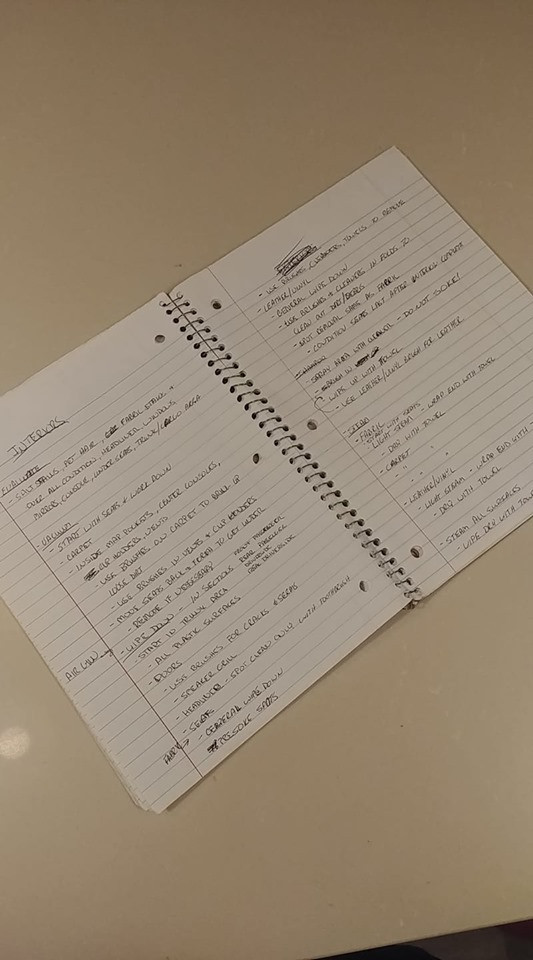 INTERIORS
EVALUATE
- SALT STAINS, PET HAIR, FABRIC STAINS +
OVER ALL CONDITION, HEADLINER, WINDOWS,
MIRRORS, CONSOLE, UNDER SEATS, TRUNK/CARGO AREA
VACUUM
- START WITH SEATS + WORK DOWN
- CARPET
- INSIDE MAP POCKETS, CENTER CONSOLES,
CUP HOLDERS, VENTS
- USE BRUSHES ON CARPET TO BRING UP
LOOSE DIRT
- USE BRUSHES IN VENTS + CUP HOLDERS
- MOVE SEATS BACK + FORTH TO GET UNDER
- REMOVE IF NECESSARY
AIR LINE
- WIPE DOWN - IN SECTIONS
FRONT PASSENGER
REAR PASSENGER
REAR DRIVERSIDE
- START IN TRUNK AREA
- ALL PLASTIC SURFACES
DOORS
- USE BRUSHES FOR CRACKS + SEAMS
- SPEAKER GRILL
- HEADLINER - SPOT CLEAN ONLY WITH TOOTHBRUSH
- SEATS
FABRIC
- GENERAL WIPE DOWN
- USE BRUSHES, CLEANERS, TOWELS TO REMOVE
- LEATHER/VINYL
- GENERAL WIPE DOWN
- USE BRUSHES + CLEANERS IN FOLDS TO
CLEAN OUT DIRT/DEBRIS
- SPOT REMOVAL SAME AS FABRIC
- CONDITION SEATS LAST AFTER INTERIOR COMPLETE
- SHAMPOO
- SPRAY AREA WITH CLEANER - DO NOT SOAK!
- BRUSH IN
- WIPE UP WITH TOWEL
- USE LEATHER/VINYL BRUSH FOR LEATHER
- STEAM
- FABRIC
- START WITH SEATS
- LIGHT STEAM - WRAP END WITH TOWEL
- DRY WITH TOWEL
- CARPET
" " "
- LEATHER/VINYL
- LIGHT STEAM - WRAP END WITH
- DRY WITH TOWEL
- STEAM ALL SURFACES
- WIPE DRY WITH